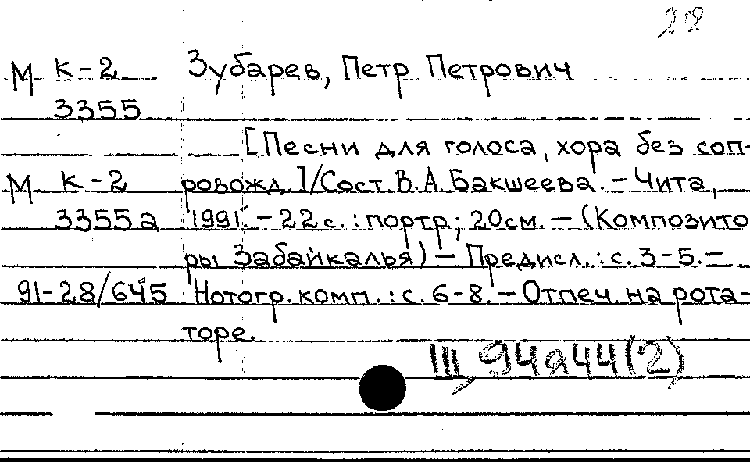 28
М К-2 Зубарев, Петр Петрович
3355
[Песни для голоса, хора без соп-
М К-2 ровожд.]/Сост. В.А. Бакшеева. - Чита,
3355а 1991. - 22 с. : портр; 20см. - (Композито
ры Забайкалья) - Предисл.: с. 3-5. -
91-28/645 Нотогр. комп. : с. 6-8. - Отпеч. на рота-
торе.
III, 94а44(2)